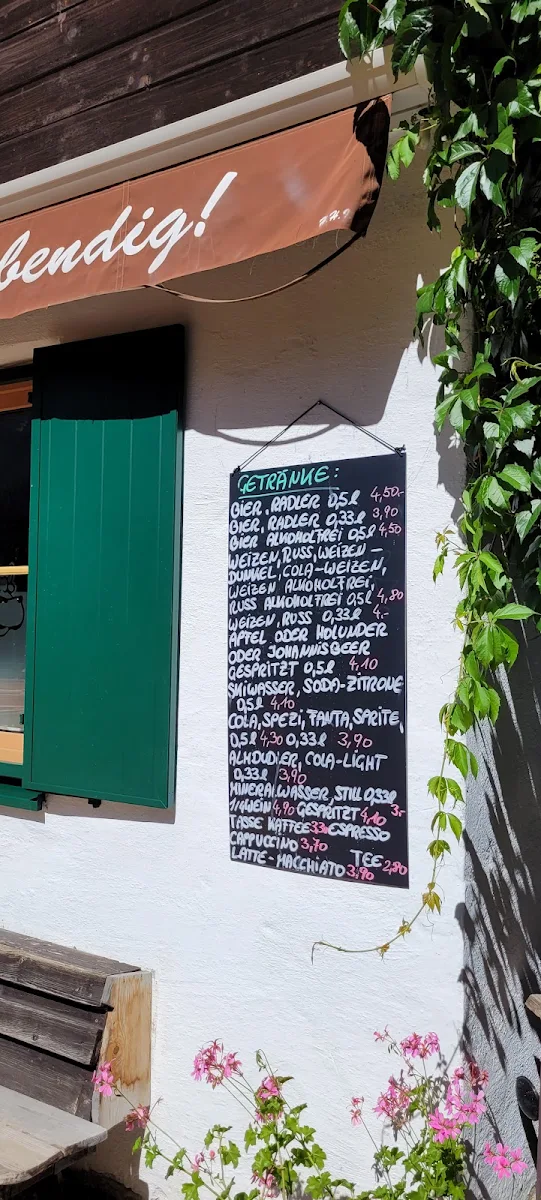 bendig!
H.H.
GETRÄNKE:
BIER, RADLER 0,5ℓ 4,50.-
BIER, RADLER 0,33ℓ 3,90
BIER ALKOHOLFREI 0,5ℓ 4,50
WEIZEN, RUSS, WEIZEN-
DUNKEL, COLA-WEIZEN,
WEIZEN ALKOHOLFREI,
RUSS ALKOHOLFREI 0,5ℓ 4,80
WEIZEN, RUSS 0,33ℓ 4.-
APFEL ODER HOLUNDER
ODER JOHANNISBEER
GESPRITZT 0,5ℓ 4,10
SKIWASSER, SODA-ZITRONE
0,5ℓ 4,10
COLA, SPEZI, FANTA, SPRITE,
0,5ℓ 4,30 0,33ℓ 3,90
ALMDUDLER, COLA-LIGHT
0,33ℓ 3,90
MINERALWASSER, STILL 0,33ℓ 3.-
1/4 WEIN 4,90 GESPRITZT 4,10
TASSE KAFFEE 3,30 ESPRESSO
CAPPUCCINO 3,70
LATTE-MACCHIATO 3,90 TEE 2,80